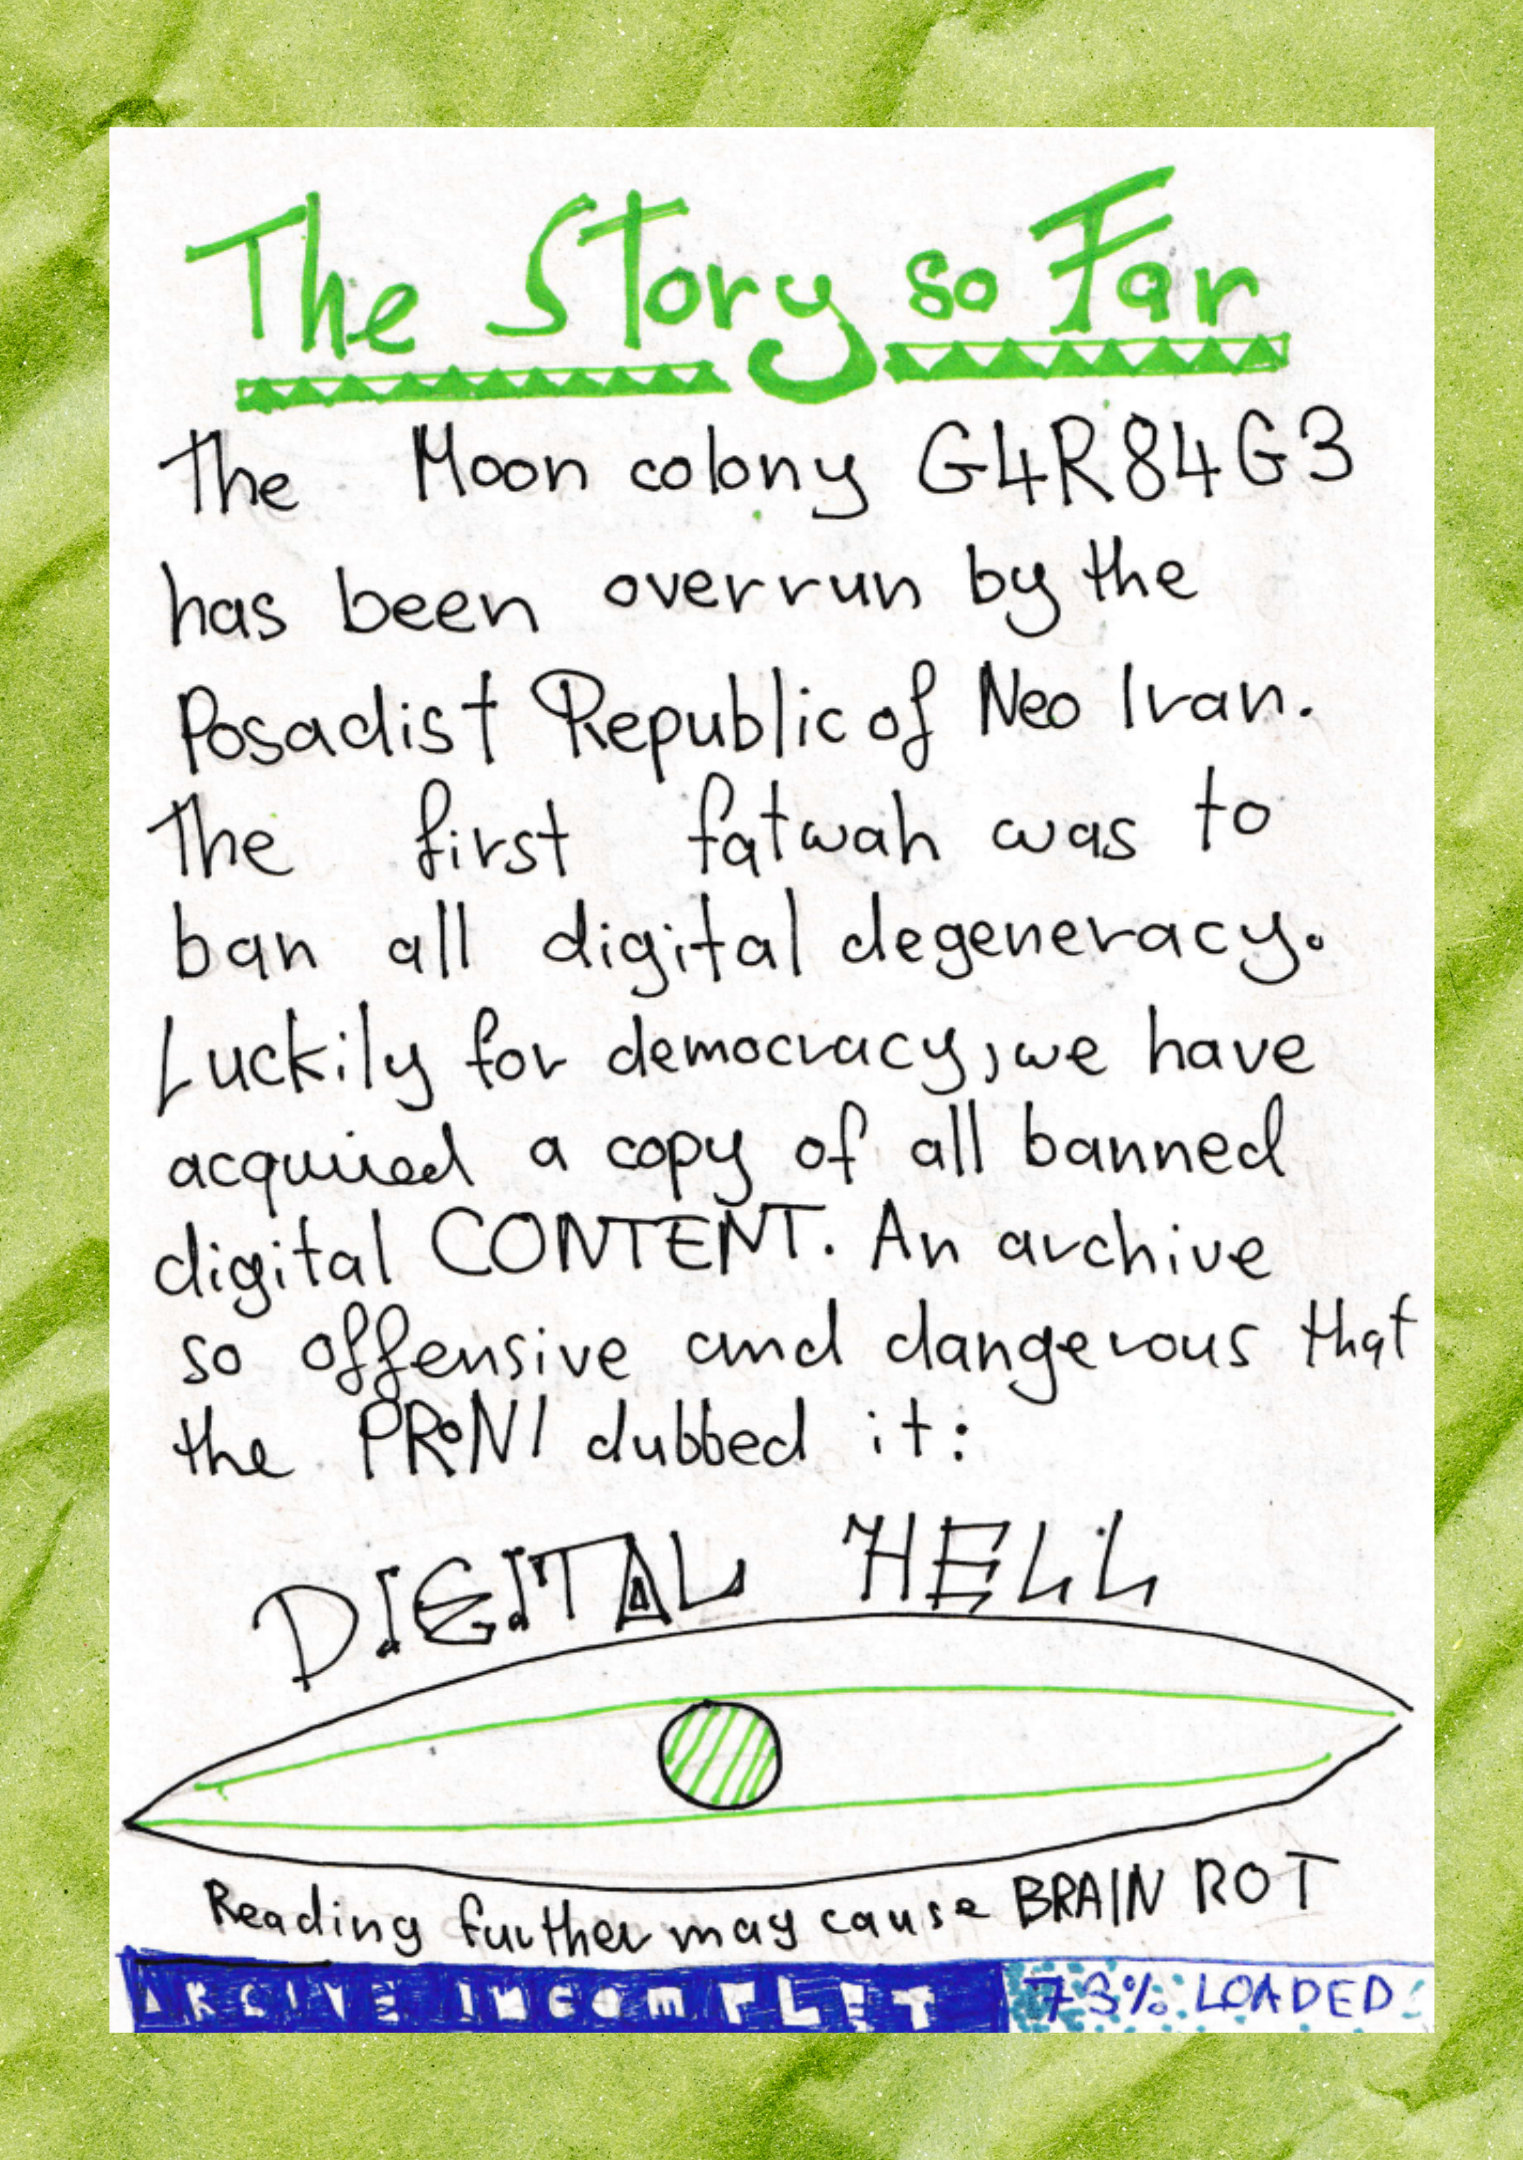 The Story so Far
The Moon colony G4R84G3
has been overrun by the
Posadist Republic of Neo Iran.
The first fatwah was to
ban all digital degeneracy.
Luckily for democracy, we have
acquired a copy of all banned
digital CONTENT. An archive
so offensive and dangerous that
the PRoNI dubbed it:
DIGITAL HELL
Reading further may cause BRAIN ROT
ARCIVE INCOMPLET 73% LOADED